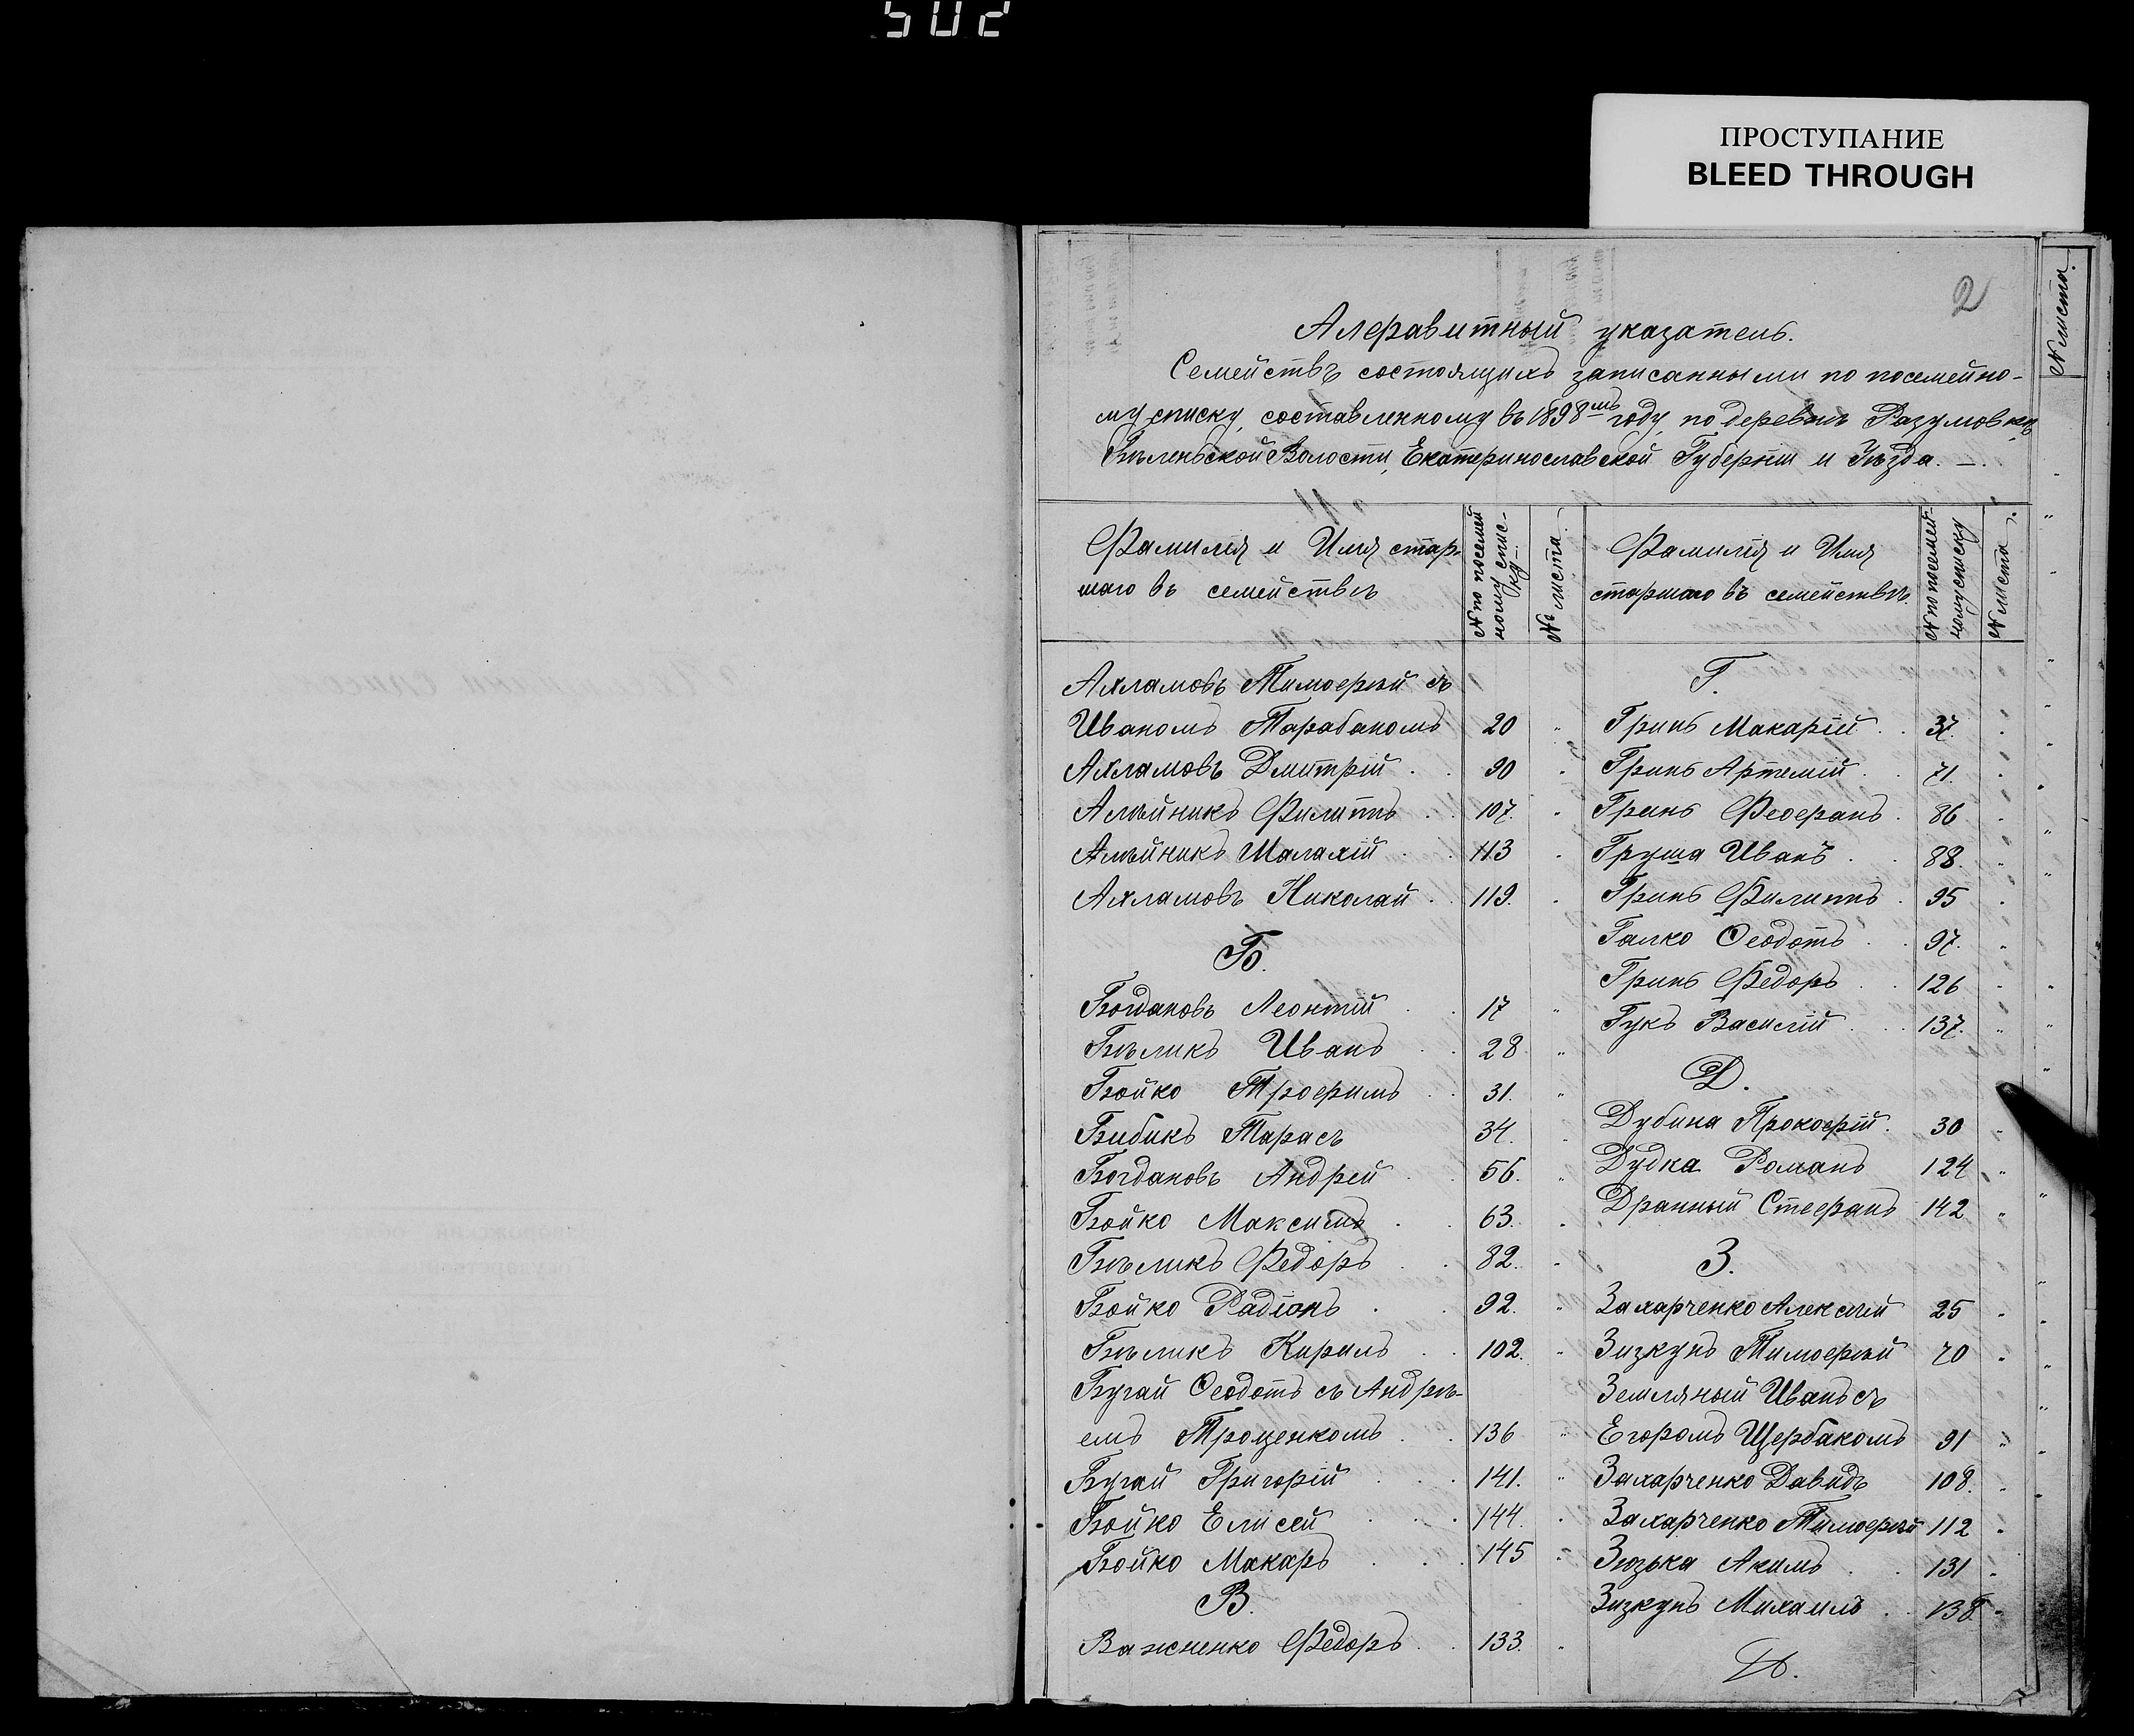 502
ПРОСТУПАНИЕ
BLEED THROUGH
2
№ листа.
Алфавитный указатель.
Семействъ состоящихъ записанными по посемейно-
му списку, составленному въ 1898мъ году, по деревнѣ Разумовкѣ
Бѣленьской Волости, Екатеринославской Губерніи и Уѣзда. —.
Фамилія и Имя стар-
шаго въ семействѣ
№ по посемей
ному спис-
ку.
№ листа.
Фамилія и Имя
старшаго въ семействѣ.
№ по посемей-
ному списку
№ листа.
Ахламовъ Тимофѣй съ
Иваномъ Тарабаномъ 20 "
Ахламовъ Дмитрій . . 90 "
Алѣйникъ Филиппъ . . 107. "
Алѣйникъ Малахій . . 113 "
Ахламовъ Николай . . 119. "
Б.
Богдановъ Леонтій . . 17 "
Бѣликъ Иванъ . . 28. "
Бойко Трофимъ . . 31. "
Бибикъ Тарасъ 34. "
Богдановъ Андрей . . 56. "
Бойко Максимъ . . 63. "
Бѣликъ Федоръ . . 82. "
Бойко Радіонъ . . 92. "
Бѣликъ Кирилъ . . 102. "
Бугай Ѳеодотъ съ Андрѣ-
емъ Троценкомъ . . 136 "
Бугай Григорій . . . 141. "
Бойко Елисей . . . 144. "
Бойко Макаръ . . . 145 "
В.
Важненко Федоръ . . 133. "
Г.
Гринь Макарій . . 37. "
Гринь Артемій . . 71. "
Гринь Феофанъ . 86 "
Груша Иванъ . . 88. "
Гринь Филиппъ . 95 "
Галко Ѳеодотъ . . 97. "
Гринь Федоръ . . 126 "
Гукъ Василій . . 137. "
Д.
Дубина Прокофій . 30 "
Дудка Романъ 124 "
Дранный Стефанъ 142 "
З.
Захарченко Алексѣй 25 "
Зизкунъ Тимофѣй 70 "
Земляный Иванъ съ
Егоромъ Щербакомъ 91 "
Захарченко Давидъ 108. "
Захарченко Тимофѣй 112 "
Зюзька Акимъ . . 131 "
Зизкунъ Михаилъ . . 138. "